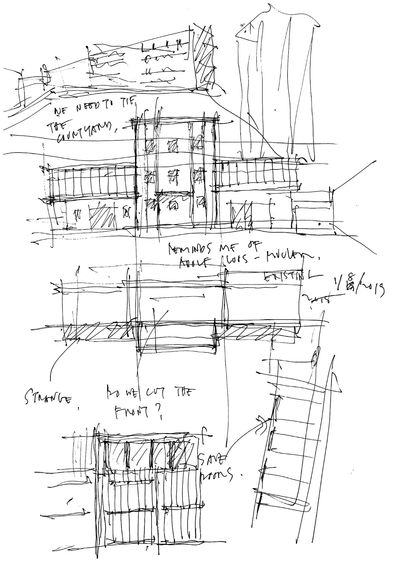 WE NEED TO TIE
THE
COURTYARD.
REMINDS ME OF
ADOLF LOOS - MULLER.
EXISTING
1/8/2019
STRANGE.
DO WE CUT THE
FRONT?
SAVE
DOORS.